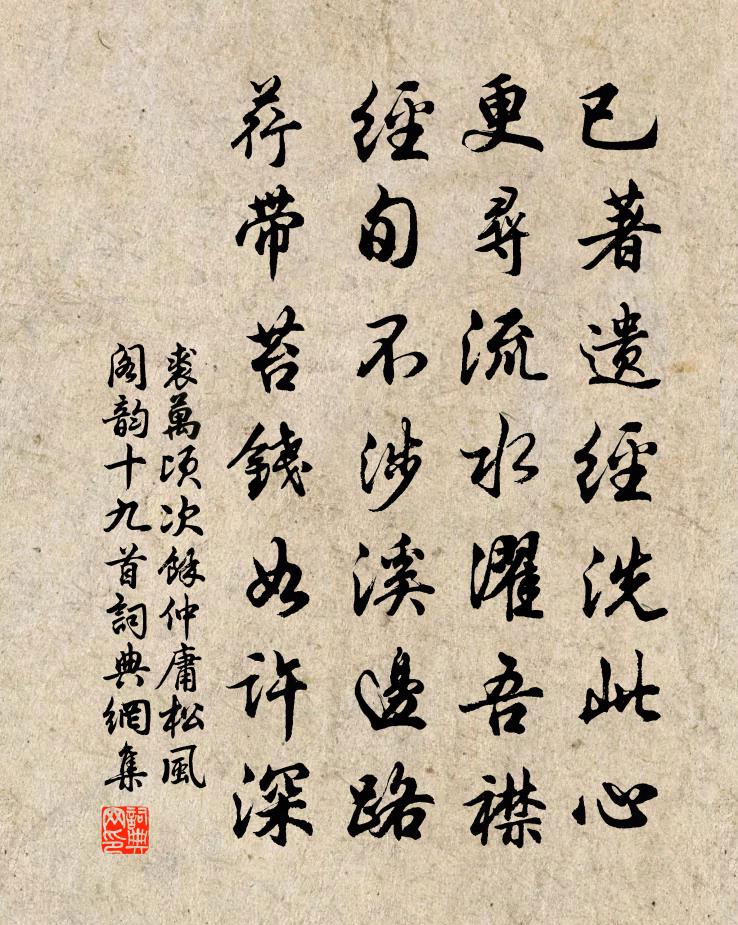 已著遺經洗此心
更尋流水濯吾襟
經旬不涉溪邊路
荇帶苔錢如許深
裘萬頃次餘仲庸松風
閣韵十九首詞典網集
詞典
网印